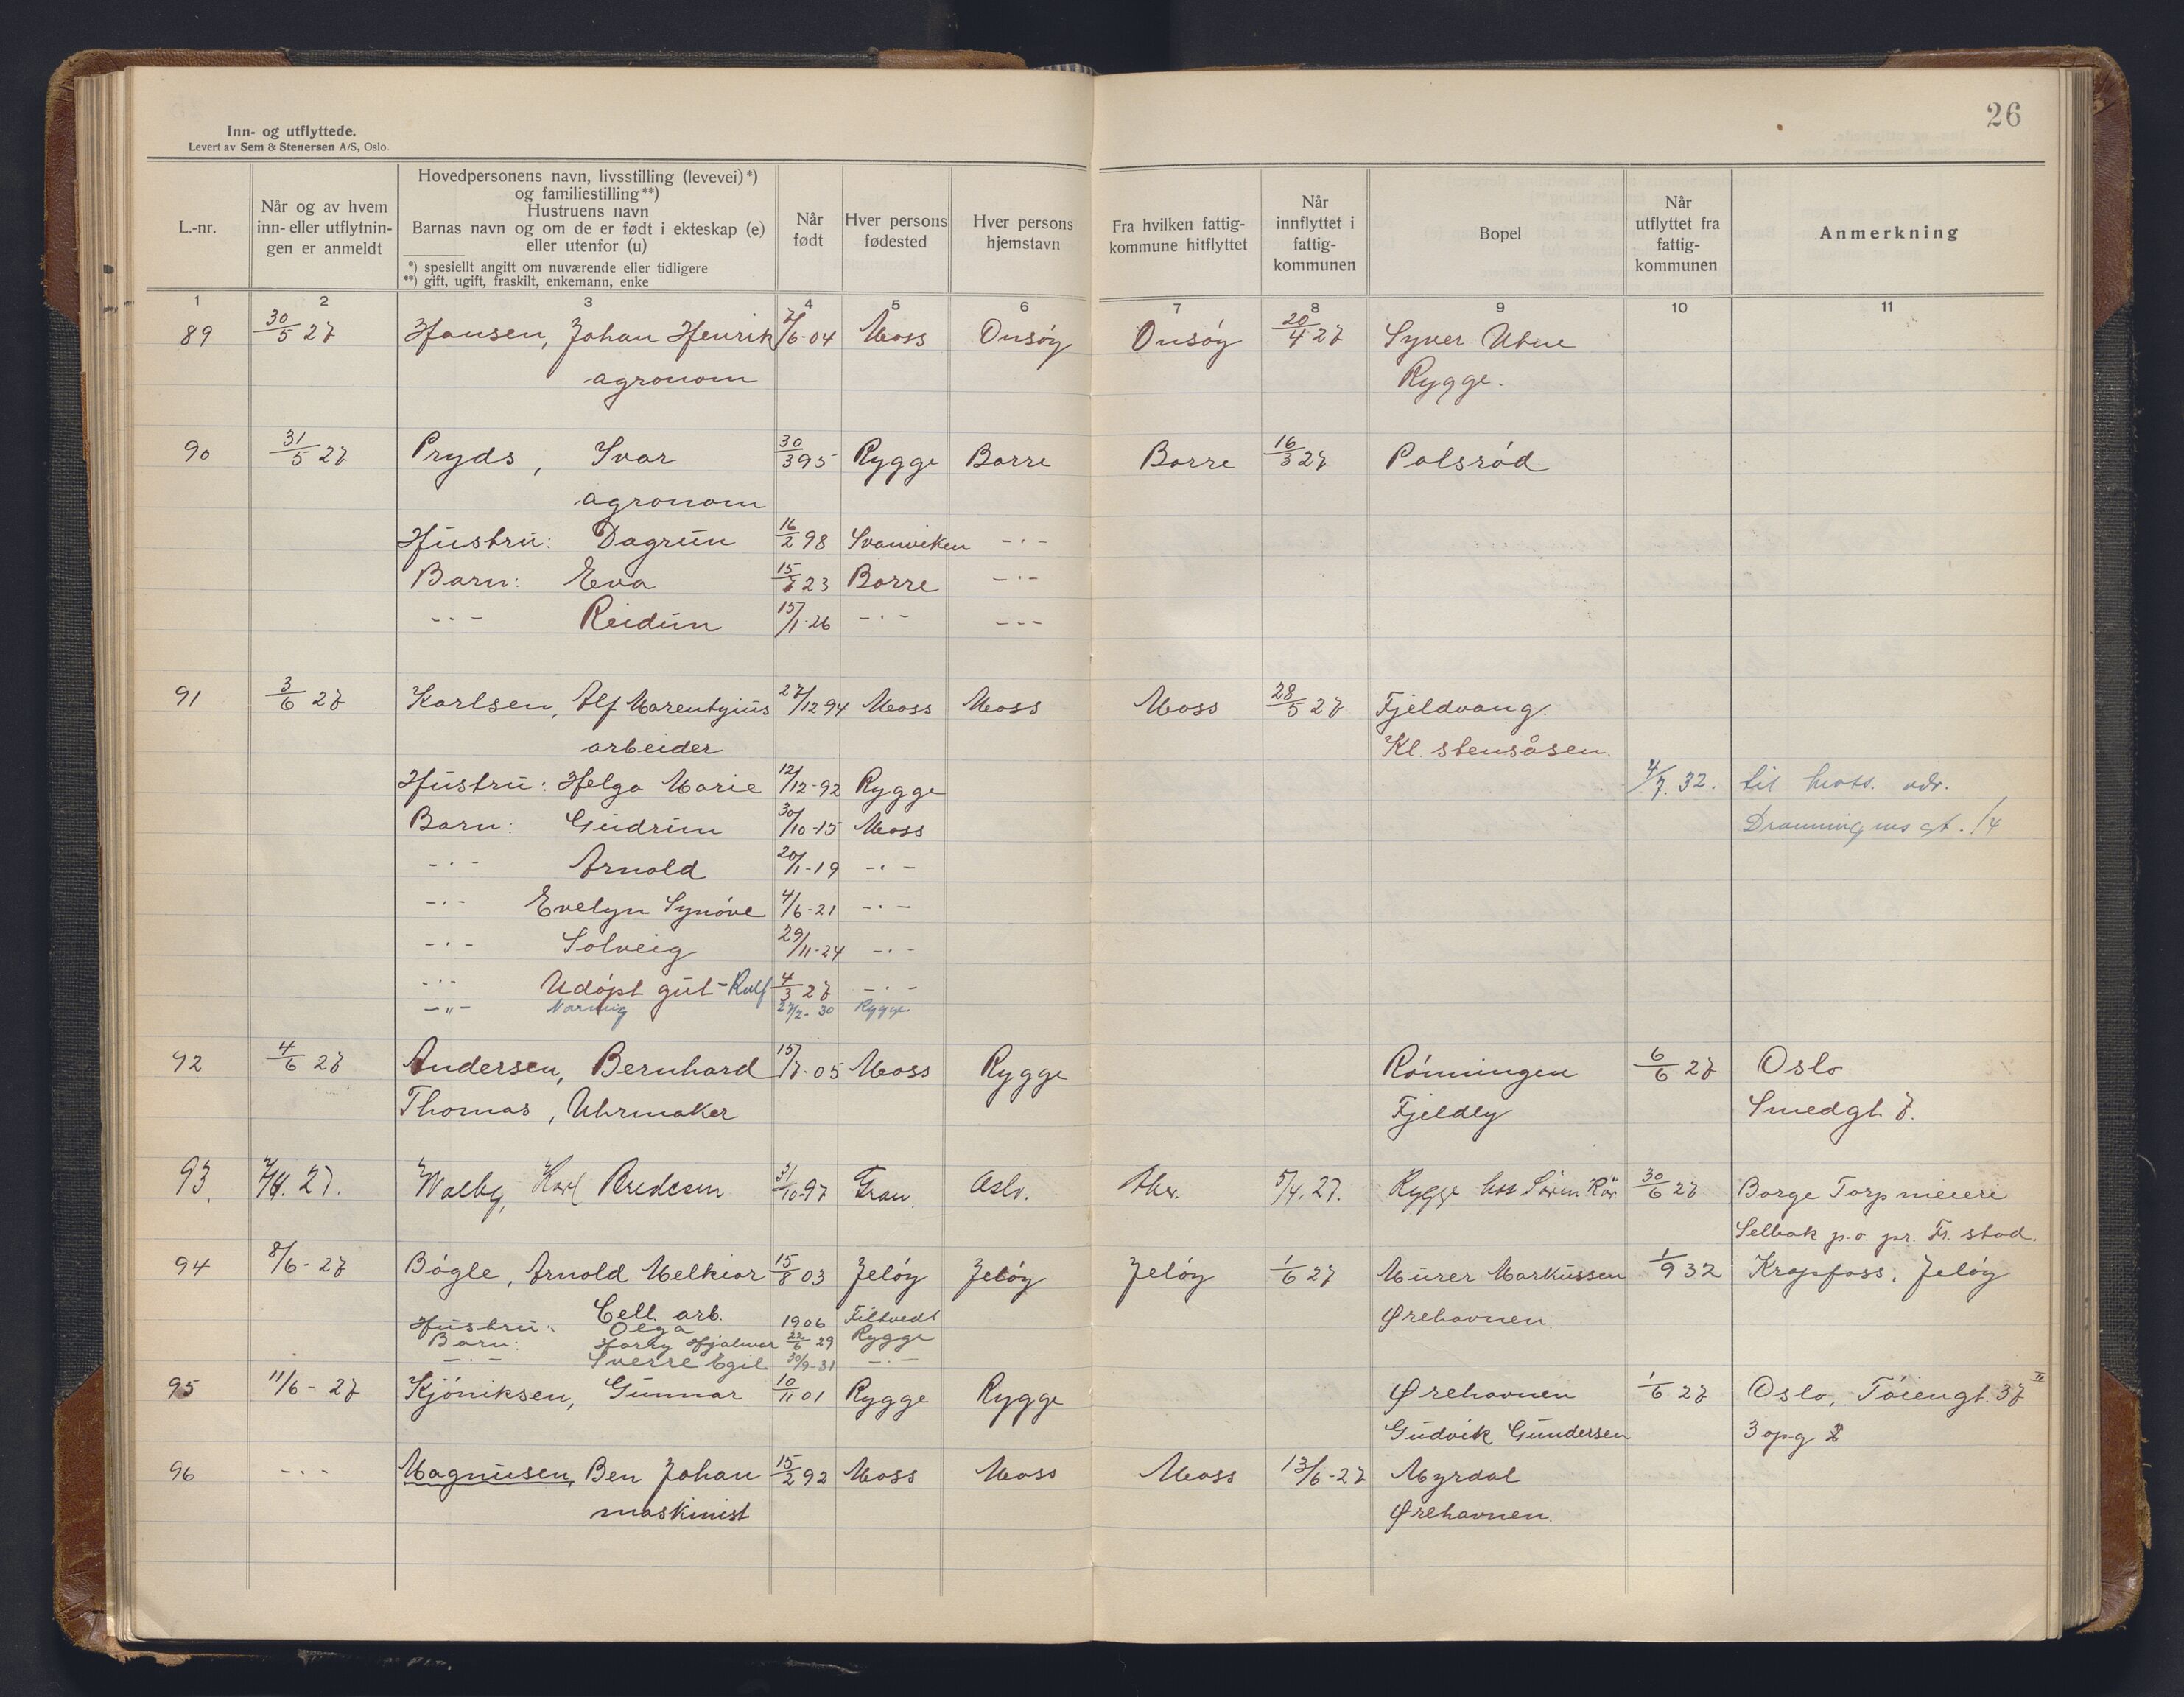 26
Inn- og utflyttede.
Levert av Sem & Stenersen A/S, Oslo.
L.-nr.
Når og av hvem
inn- eller utflytnin-
gen er anmeldt
Hovedpersonens navn, livsstilling (levevei)*)
og familiestilling**)
Hustruens navn
Barnas navn og om de er født i ekteskap (e)
eller utenfor (u)
*) spesielt angitt om nuværende eller tidligere
**) gift, ugift, fraskilt, enkemann, enke
Når
født
Hver persons
fødested
Hver persons
hjemstavn
Fra hvilken fattig-
kommune hitflyttet
Når
innflyttet i
fattig-
kommunen
Bopel
Når
utflyttet fra
fattig-
kommunen
Anmerkning
1 2 3 4 5 6 7 8 9 10 11
89 30/5 27 Hansen, Johan Henrik 7/6-04 Moss Onsøy Onsøy 20/4 27 Syver Utne
agronom Rygge.
90 31/5 27 Pryds, Ivar 30/3 95 Rygge Borre Borre 16/3 27 Palsrød
agronom
Hustru: Dagrun 16/2 98 Svanviken -·-
Barn: Eva 15/7 23 Borre -·-
-·- Reidun 15/1-26 -·- -·-
91 3/6 27 Karlsen, Alf Marentyius 27/12 94 Moss Moss Moss 28/5 27 Fjeldvang.
arbeider Kl. stensåsen.
Hustru: Helga Marie 12/12-92 Rygge 4/7. 32. til Moss. adr.
Barn: Gudrun 30/10-15 Moss Dronningens gt. 14
-·- Arnold 20/1-19 -·-
-·- Evelyn Synøve 4/6-21 -·-
-·- Solveig 29/11-24 -·-
-·- Udøpt gut - Rolf 4/3 27 -·-
-"- 27/2-30 Rygge
92 4/6 27 Andersen, Bernhard 15/7-05 Moss Rygge Rønningen 6/6 27 Oslo
Thomas, Uhrmaker Fjeldly Smedgt 7.
93. 27. Walby, Karl Bredesen 3/10-97 Gran. Oslo. Aker. 5/4. 27. Rygge hos Søren 30/6 27 Borge Torp meieri
Selbak p.o. pr. Fr. stad.
94 8/6-27 Bøgle, Arnold Melkior 15/8 03 Jeløy Jeløy Jeløy 1/6 27 Murer Markussen 1/9 32 Krapfoss, Jeløy
Cell. arb. Ørehavnen.
Hustru: Olga 1906 Filtvedt
Barn: Harry Hjalmar 22/6 29 Rygge
-·- Sverre Egil 30/9-31 -·-
95 11/6-27 Kjøniksen, Gunnar 10/11 01 Rygge Rygge Ørehavnen 1/6 27 Oslo, Tøiengt. 37 II
Gudvik Gundersen 3 opg 2
96 -·- Magnusen, Ben Johan 15/2 92 Moss Moss Moss 13/6-27 Myrdal
maskinist Ørehavnen.